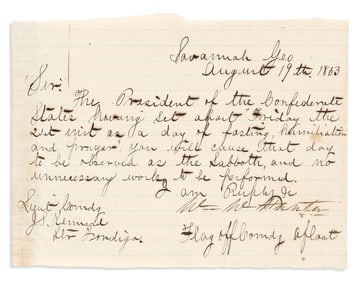 Savannah Geo
August 19th. 1863
Sir.
The President of the Confederate
States having set apart "Friday the
21st inst as a day of fasting, humiliation
and prayer", you will cause that day
to be observed as the Sabbath, and no
unnecessary work to be performed.
I am Respy &c
Lieut Comdg Wm W Hunter
J.S. Kennard
Str Isondiga. Flag off Comdg Afloat